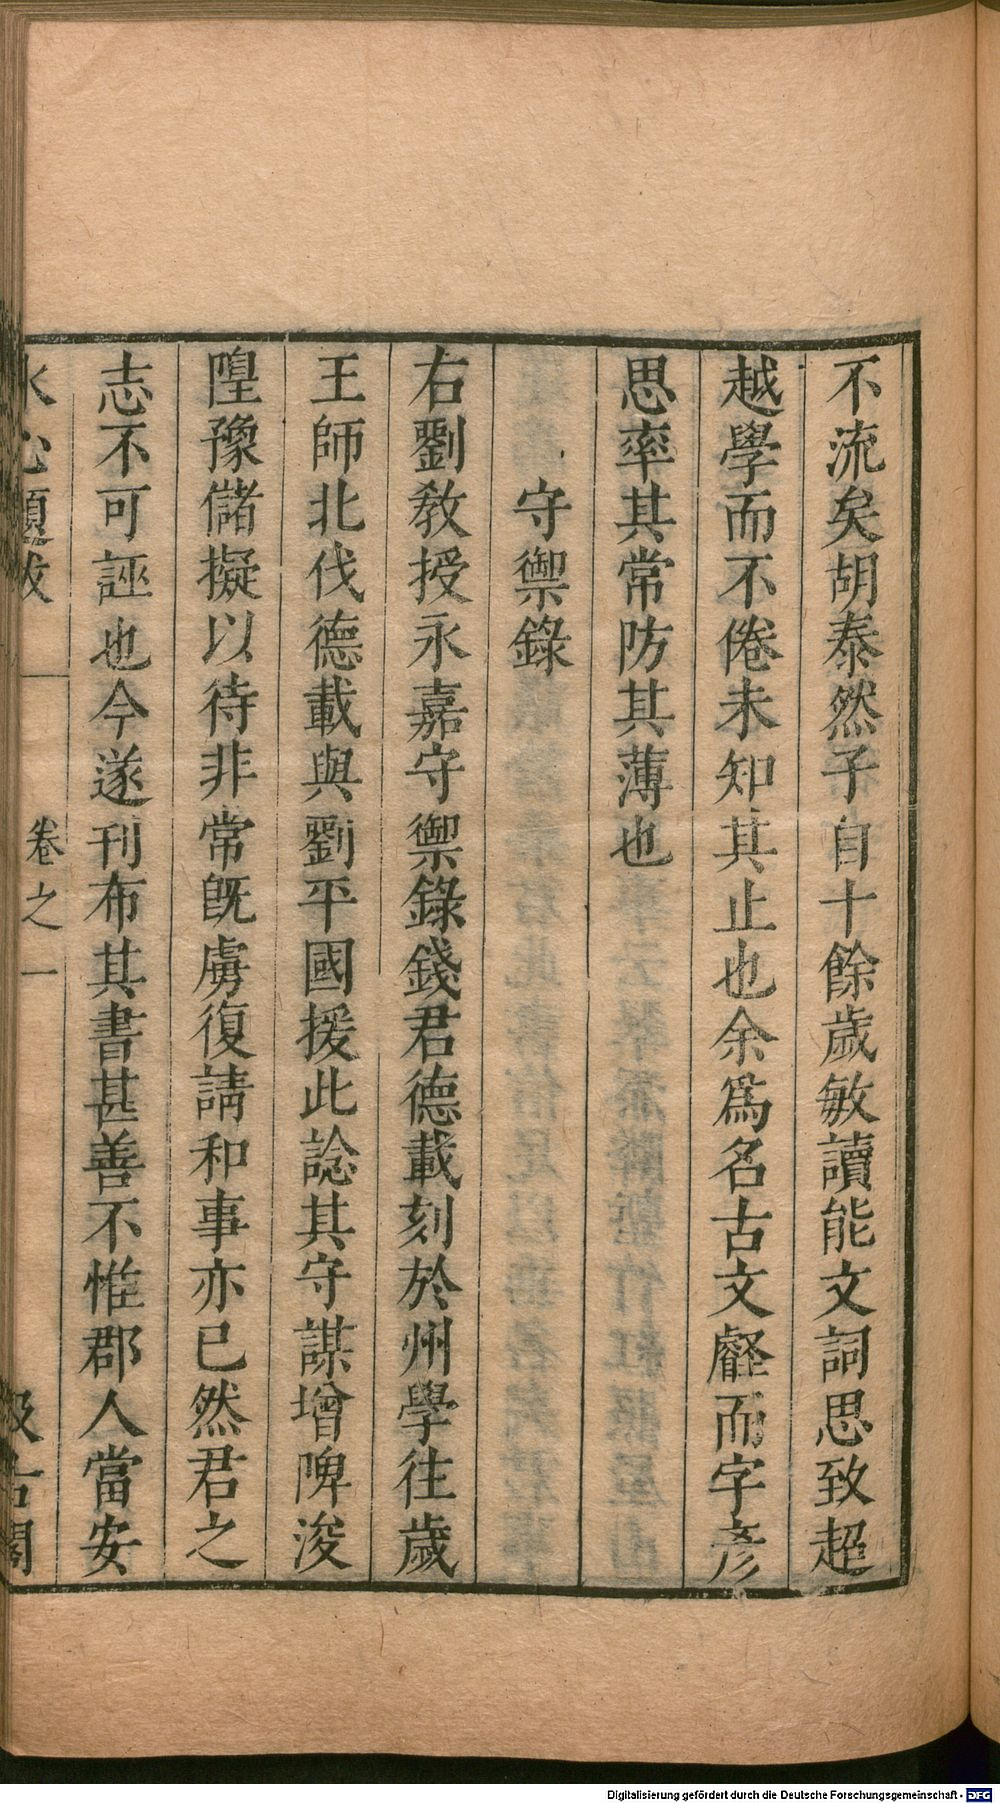 不流矣胡泰然子自十餘歲敏讀能文詞思致超
越學而不倦未知其止也余爲名古文壡而字彥
思率其常防其薄也
守禦錄
右劉教授永嘉守禦錄錢君德載刻於州學往歲
王師北伐德載與劉平國援此諗其守謀增陴浚
隍豫儲擬以待非常旣虜復請和事亦已然君之
志不可誣也今遂刊布其書甚善不惟郡人當安
水心題跋 卷之一 汲古閣
Digitalisierung gefördert durch die Deutsche Forschungsgemeinschaft - DFG